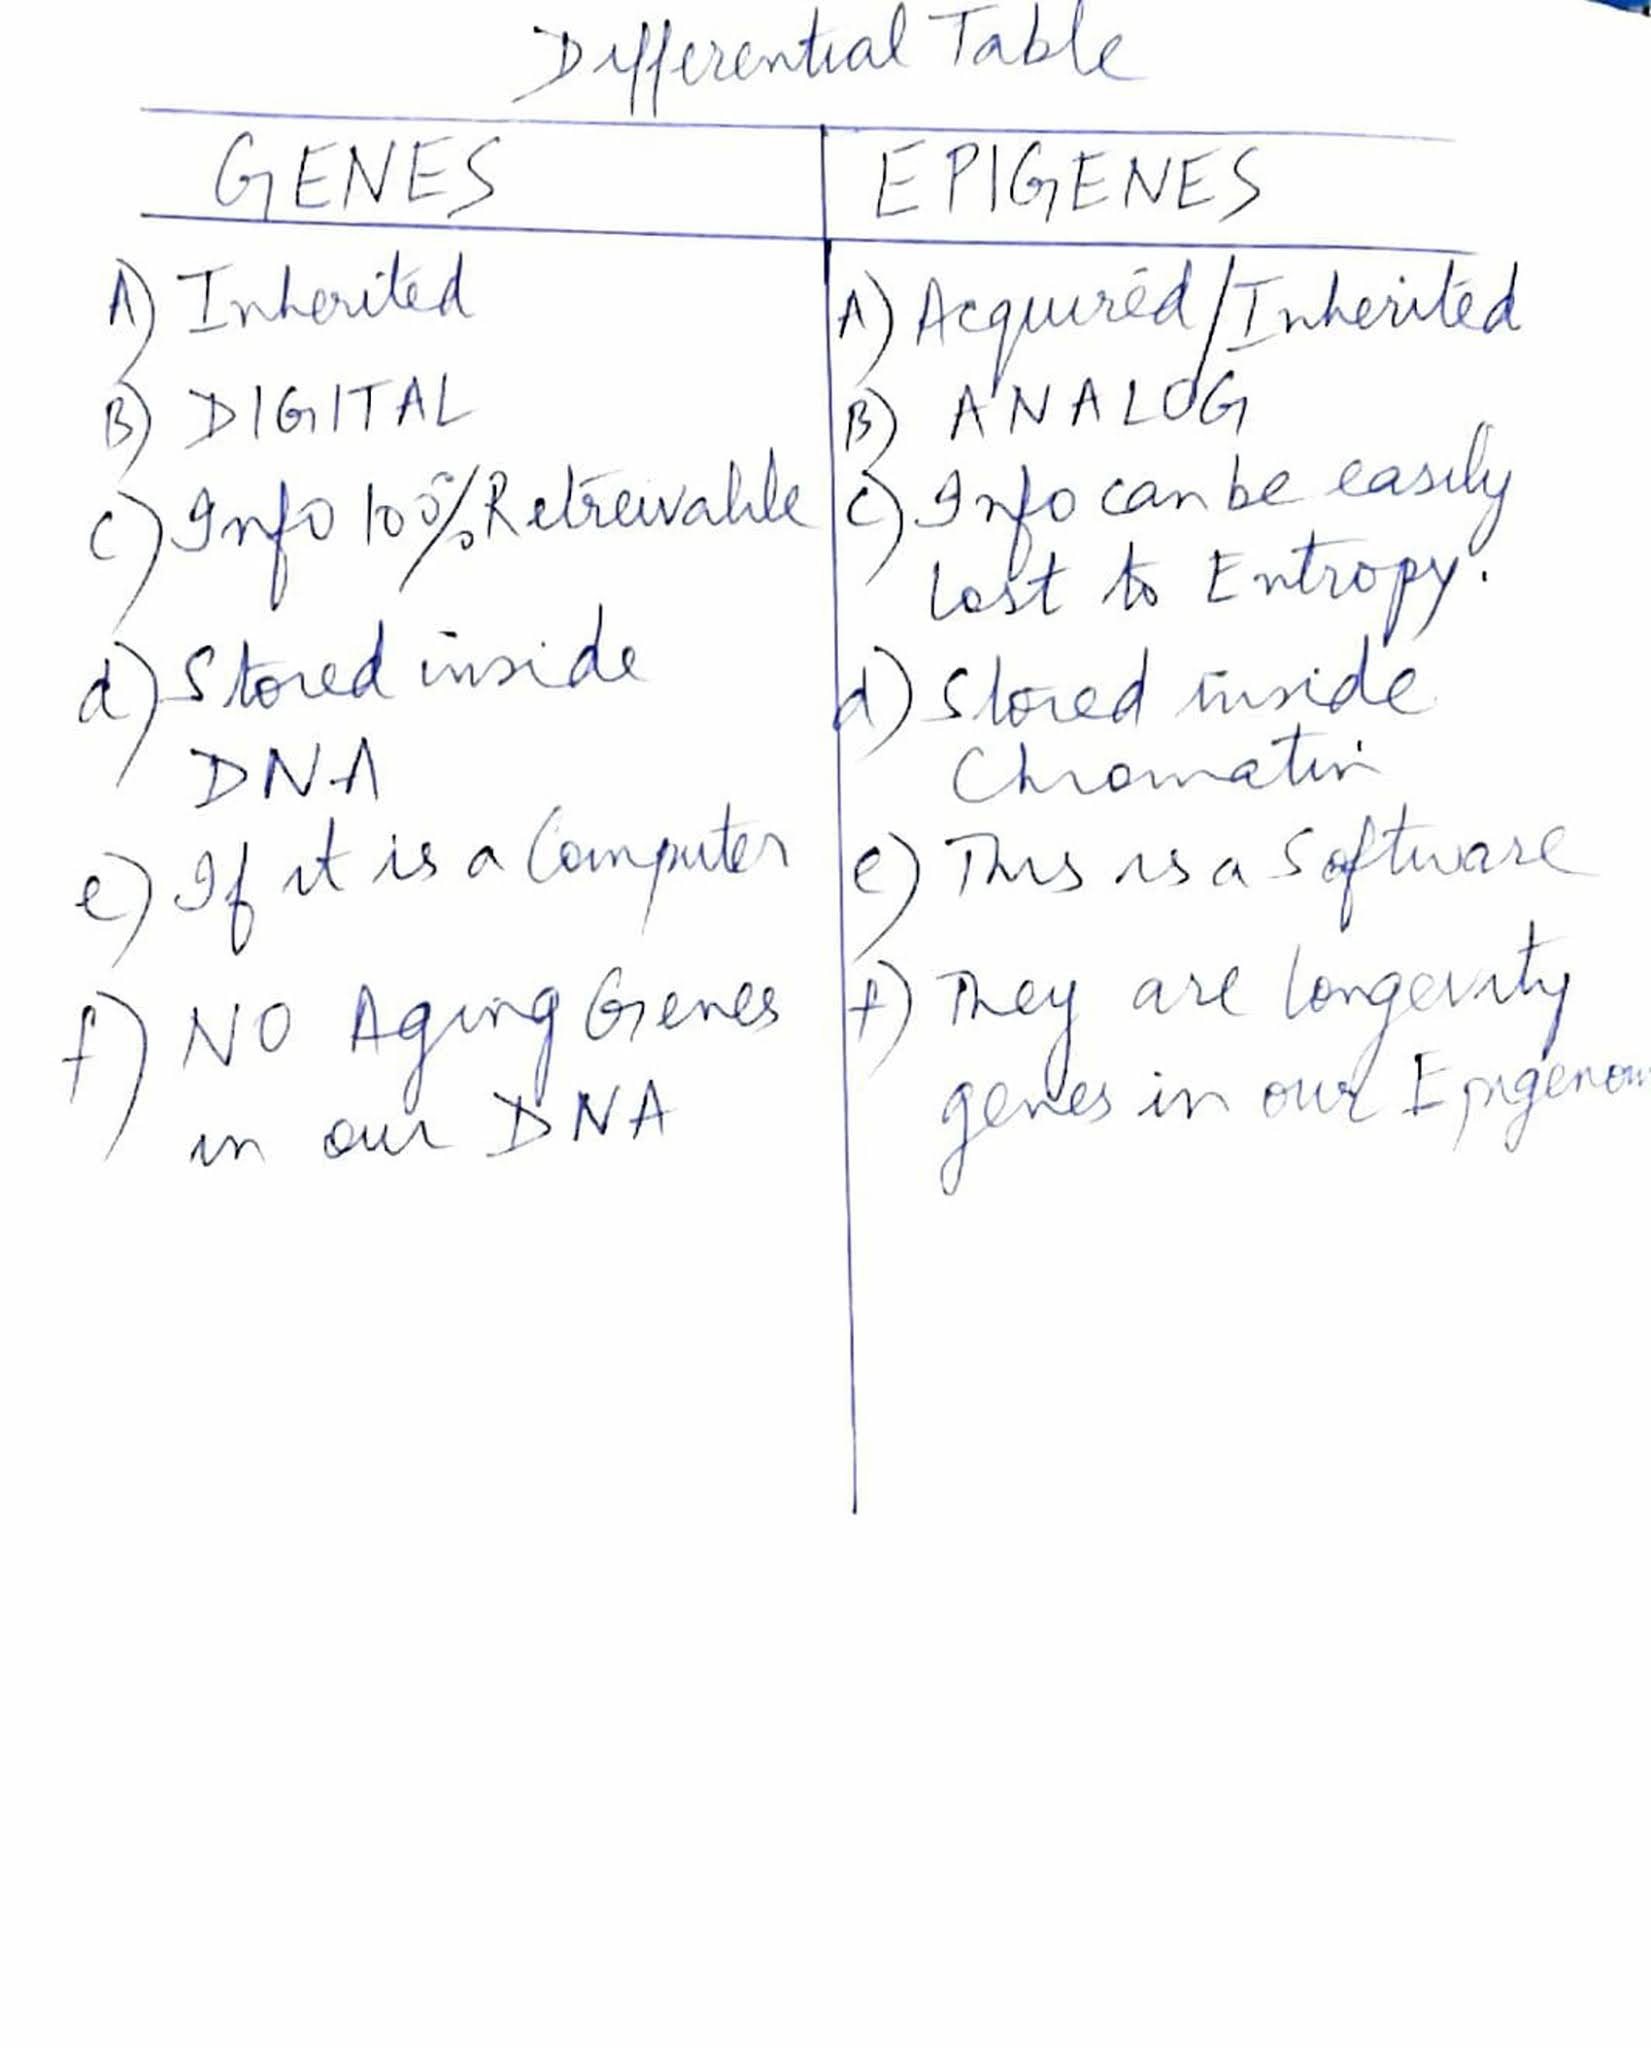 Differential Table
GENES
EPIGENES
A) Inherited
B) DIGITAL
C) Info 100% Retreivable
d) Stored inside
DNA
e) If it is a Computer
f) NO Aging Genes
in our DNA
A) Acquired/Inherited
B) ANALOG
C) Info can be easily
lost to Entropy.
d) Stored inside
Chromatin
e) This is a Software
f) They are longevity
genes in our Epigenom